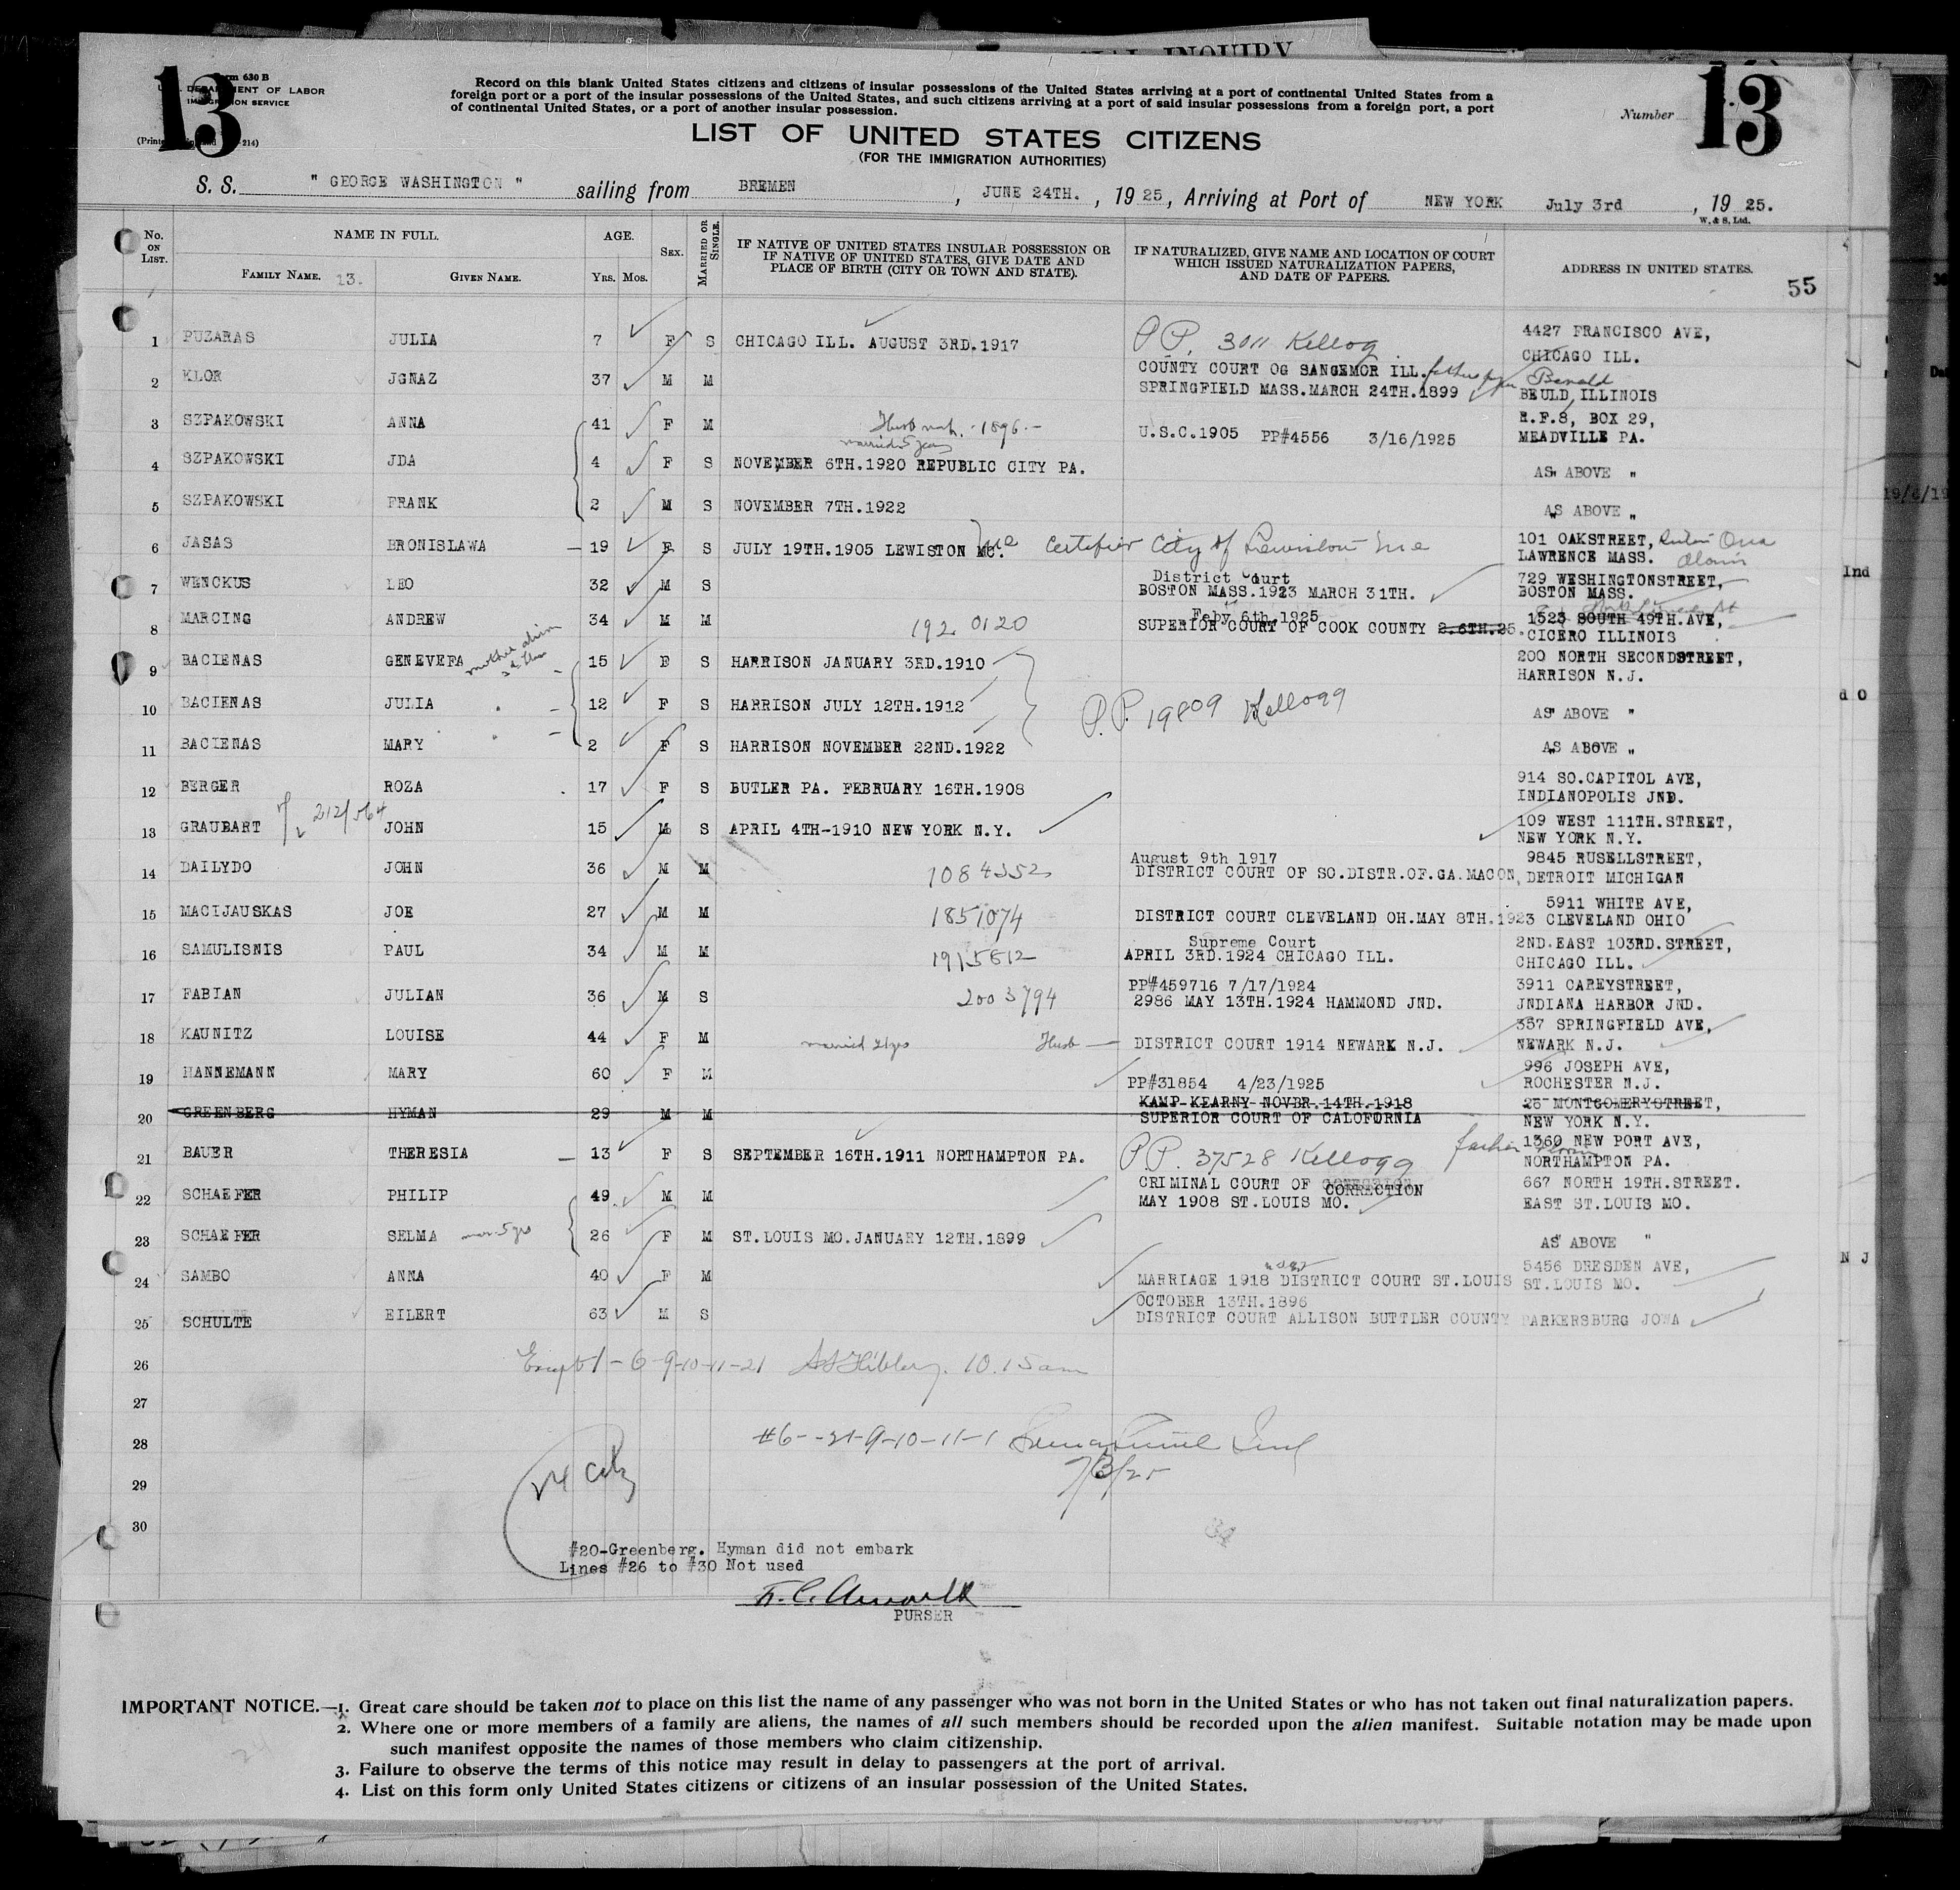 SPECIAL INQUIRY
13
Form 630 B
U.S. DEPARTMENT OF LABOR
IMMIGRATION SERVICE
Record on this blank United States citizens and citizens of insular possessions of the United States arriving at a port of continental United States from a
foreign port or a port of the insular possessions of the United States, and such citizens arriving at a port of said insular possessions from a foreign port, a port
of continental United States, or a port of another insular possession.
Number 13
LIST OF UNITED STATES CITIZENS
(FOR THE IMMIGRATION AUTHORITIES)
S. S. " GEORGE WASHINGTON " sailing from BREMEN , JUNE 24TH. , 19 25 , Arriving at Port of NEW YORK July 3rd , 19 25.
W. & S. Ltd.
No. ON LIST. NAME IN FULL. AGE. SEX. MARRIED OR SINGLE. IF NATIVE OF UNITED STATES INSULAR POSSESSION OR IF NATIVE OF UNITED STATES, GIVE DATE AND PLACE OF BIRTH (CITY OR TOWN AND STATE). IF NATURALIZED, GIVE NAME AND LOCATION OF COURT WHICH ISSUED NATURALIZATION PAPERS, AND DATE OF PAPERS. ADDRESS IN UNITED STATES.
FAMILY NAME. 13. GIVEN NAME. YRS. MOS. 55
1 PUZARAS JULIA 7 F S CHICAGO ILL. AUGUST 3RD.1917 P.P. 3011 Kellog 4427 FRANCISCO AVE,
CHICAGO ILL.
2 KLOR JGNAZ 37 M M COUNTY COURT OG SANGEMOR ILL. fathers Benald
SPRINGFIELD MASS.MARCH 24TH.1899 BEULD ILLINOIS
3 SZPAKOWSKI ANNA 41 F M Husb nat. -1896.- U.S.C.1905 PP#4556 3/16/1925 R.F.8, BOX 29,
MEADVILLE PA.
married 5 years
4 SZPAKOWSKI JDA 4 F S NOVEMBER 6TH.1920 REPUBLIC CITY PA. AS ABOVE "
5 SZPAKOWSKI FRANK 2 M S NOVEMBER 7TH.1922 AS ABOVE "
6 JASAS BRONISLAWA 19 F S JULY 19TH.1905 LEWISTON MO. Me Certifier City of Lewiston Me 101 OAKSTREET,
LAWRENCE MASS.
7 WENCKUS LEO 32 M S District Court 729 WESHINGTONSTREET,
BOSTON MASS.1923 MARCH 31TH. BOSTON MASS.
8 MARCING ANDREW 34 M M 192 0120 Feby 6th 1925
SUPERIOR COURT OF COOK COUNTY 2.6TH.25. 1523 SOUTH 49TH.AVE,
CICERO ILLINOIS
9 BACIENAS GENEVEFA mother 15 F S HARRISON JANUARY 3RD.1910 200 NORTH SECONDSTREET,
HARRISON N.J.
10 BACIENAS JULIA 12 F S HARRISON JULY 12TH.1912 P.P. 19809 Kellogg AS ABOVE "
11 BACIENAS MARY 2 F S HARRISON NOVEMBER 22ND.1922 AS ABOVE "
12 BERGER ROZA 17 F S BUTLER PA. FEBRUARY 16TH.1908 914 SO.CAPITOL AVE,
INDIANOPOLIS JND.
212/564
13 GRAUBART JOHN 15 M S APRIL 4TH-1910 NEW YORK N.Y. 109 WEST 111TH.STREET,
NEW YORK N.Y.
14 DAILYDO JOHN 36 M M 1084352 August 9th 1917 9845 RUSELLSTREET,
DISTRICT COURT OF SO.DISTR.OF.GA.MACON, DETROIT MICHIGAN
15 MACIJAUSKAS JOE 27 M M 1851074 5911 WHITE AVE,
DISTRICT COURT CLEVELAND OH.MAY 8TH.1923 CLEVELAND OHIO
16 SAMULISNIS PAUL 34 M M 1915812 Supreme Court 2ND.EAST 103RD.STREET,
APRIL 3RD.1924 CHICAGO ILL. CHICAGO ILL.
17 FABIAN JULIAN 36 M S 2003794 PP#459716 7/17/1924 3911 CAREYSTREET,
2986 MAY 13TH.1924 HAMMOND JND. JNDIANA HARBOR JND.
18 KAUNITZ LOUISE 44 F M married 21yrs Husb — DISTRICT COURT 1914 NEWARK N.J. 357 SPRINGFIELD AVE,
NEWARK N.J.
19 HANNEMANN MARY 60 F M PP#31854 4/23/1925 996 JOSEPH AVE,
ROCHESTER N.J.
20 GREENBERG HYMAN 29 M M KAMP KEARNY NOVBR.14TH.1918 26 MONTGOMERYSTREET,
SUPERIOR COURT OF CALOFORNIA NEW YORK N.Y.
21 BAUER THERESIA 13 F S SEPTEMBER 16TH.1911 NORTHAMPTON PA. P.P. 37528 Kellogg father 1360 NEW PORT AVE,
NORTHAMPTON PA.
22 SCHAEFER PHILIP 49 M M CRIMINAL COURT OF CORRECTION 667 NORTH 19TH.STREET.
MAY 1908 ST.LOUIS MO. EAST ST.LOUIS MO.
23 SCHAEFER SELMA mar 5 yrs 26 F M ST.LOUIS MO.JANUARY 12TH.1899 AS ABOVE "
24 SAMBO ANNA 40 F M MARRIAGE 1918 DISTRICT COURT ST.LOUIS 5456 DRESDEN AVE,
ST.LOUIS MO.
25 SCHULTE EILERT 63 M S OCTOBER 13TH.1896
DISTRICT COURT ALLISON BUTTLER COUNTY PARKERSBURG JOWA
26 Except 1-6-9-10-11-21 10.15am
27
28 #6--21-9-10-11-1
7/3/25
29
30
#20-Greenberg. Hyman did not embark
Lines #26 to #30 Not used
PURSER
IMPORTANT NOTICE.—1. Great care should be taken not to place on this list the name of any passenger who was not born in the United States or who has not taken out final naturalization papers.
2. Where one or more members of a family are aliens, the names of all such members should be recorded upon the alien manifest. Suitable notation may be made upon
such manifest opposite the names of those members who claim citizenship.
3. Failure to observe the terms of this notice may result in delay to passengers at the port of arrival.
4. List on this form only United States citizens or citizens of an insular possession of the United States.